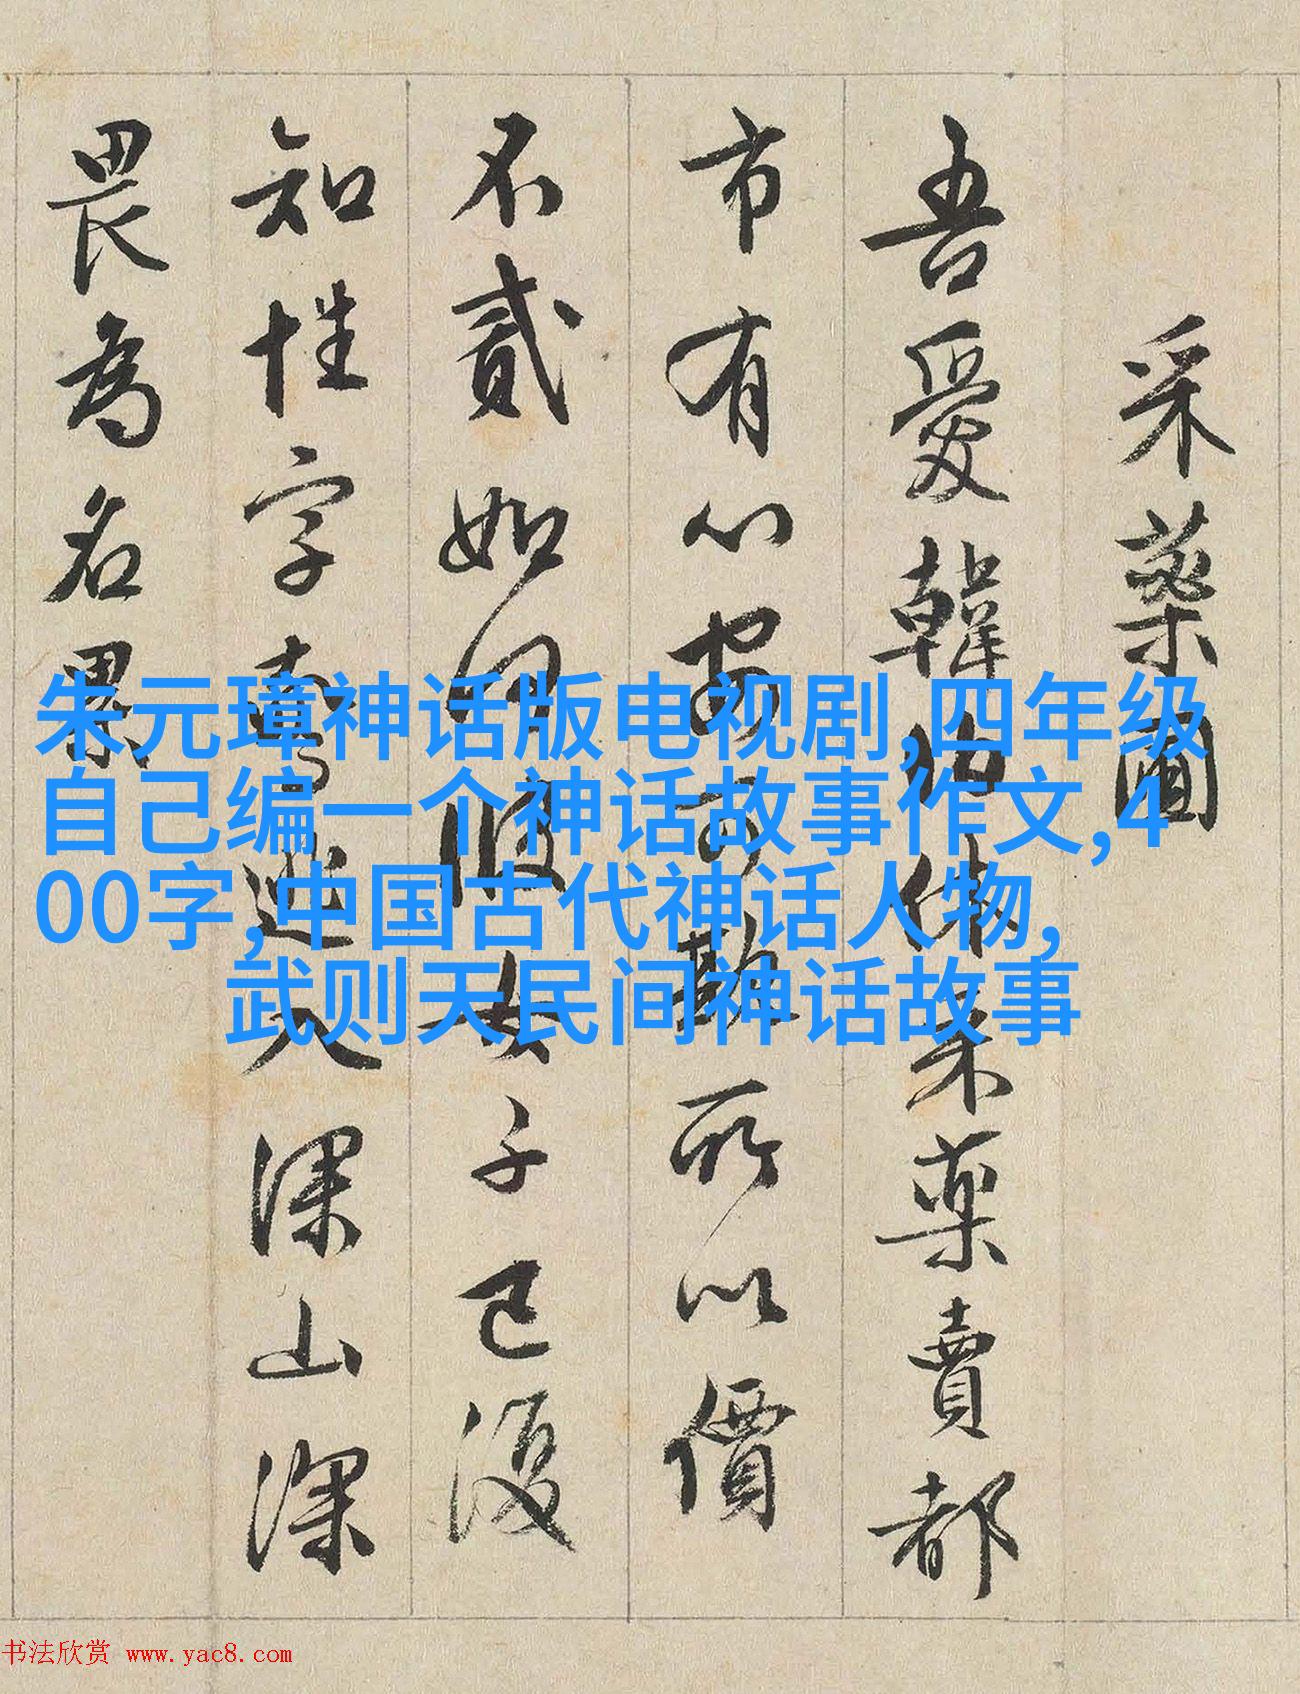 采藥圖
吾愛韓伯休采藥賣都
市有心安可所以價
不貳如何服女子已復
知性字逃入深山深
畏為名累
朱元璋神话版电视剧,四年级
自己编一个神话故事作文,4
00字,中国古代神话人物,
武则天民间神话故事
书法欣赏 www.yac8.com